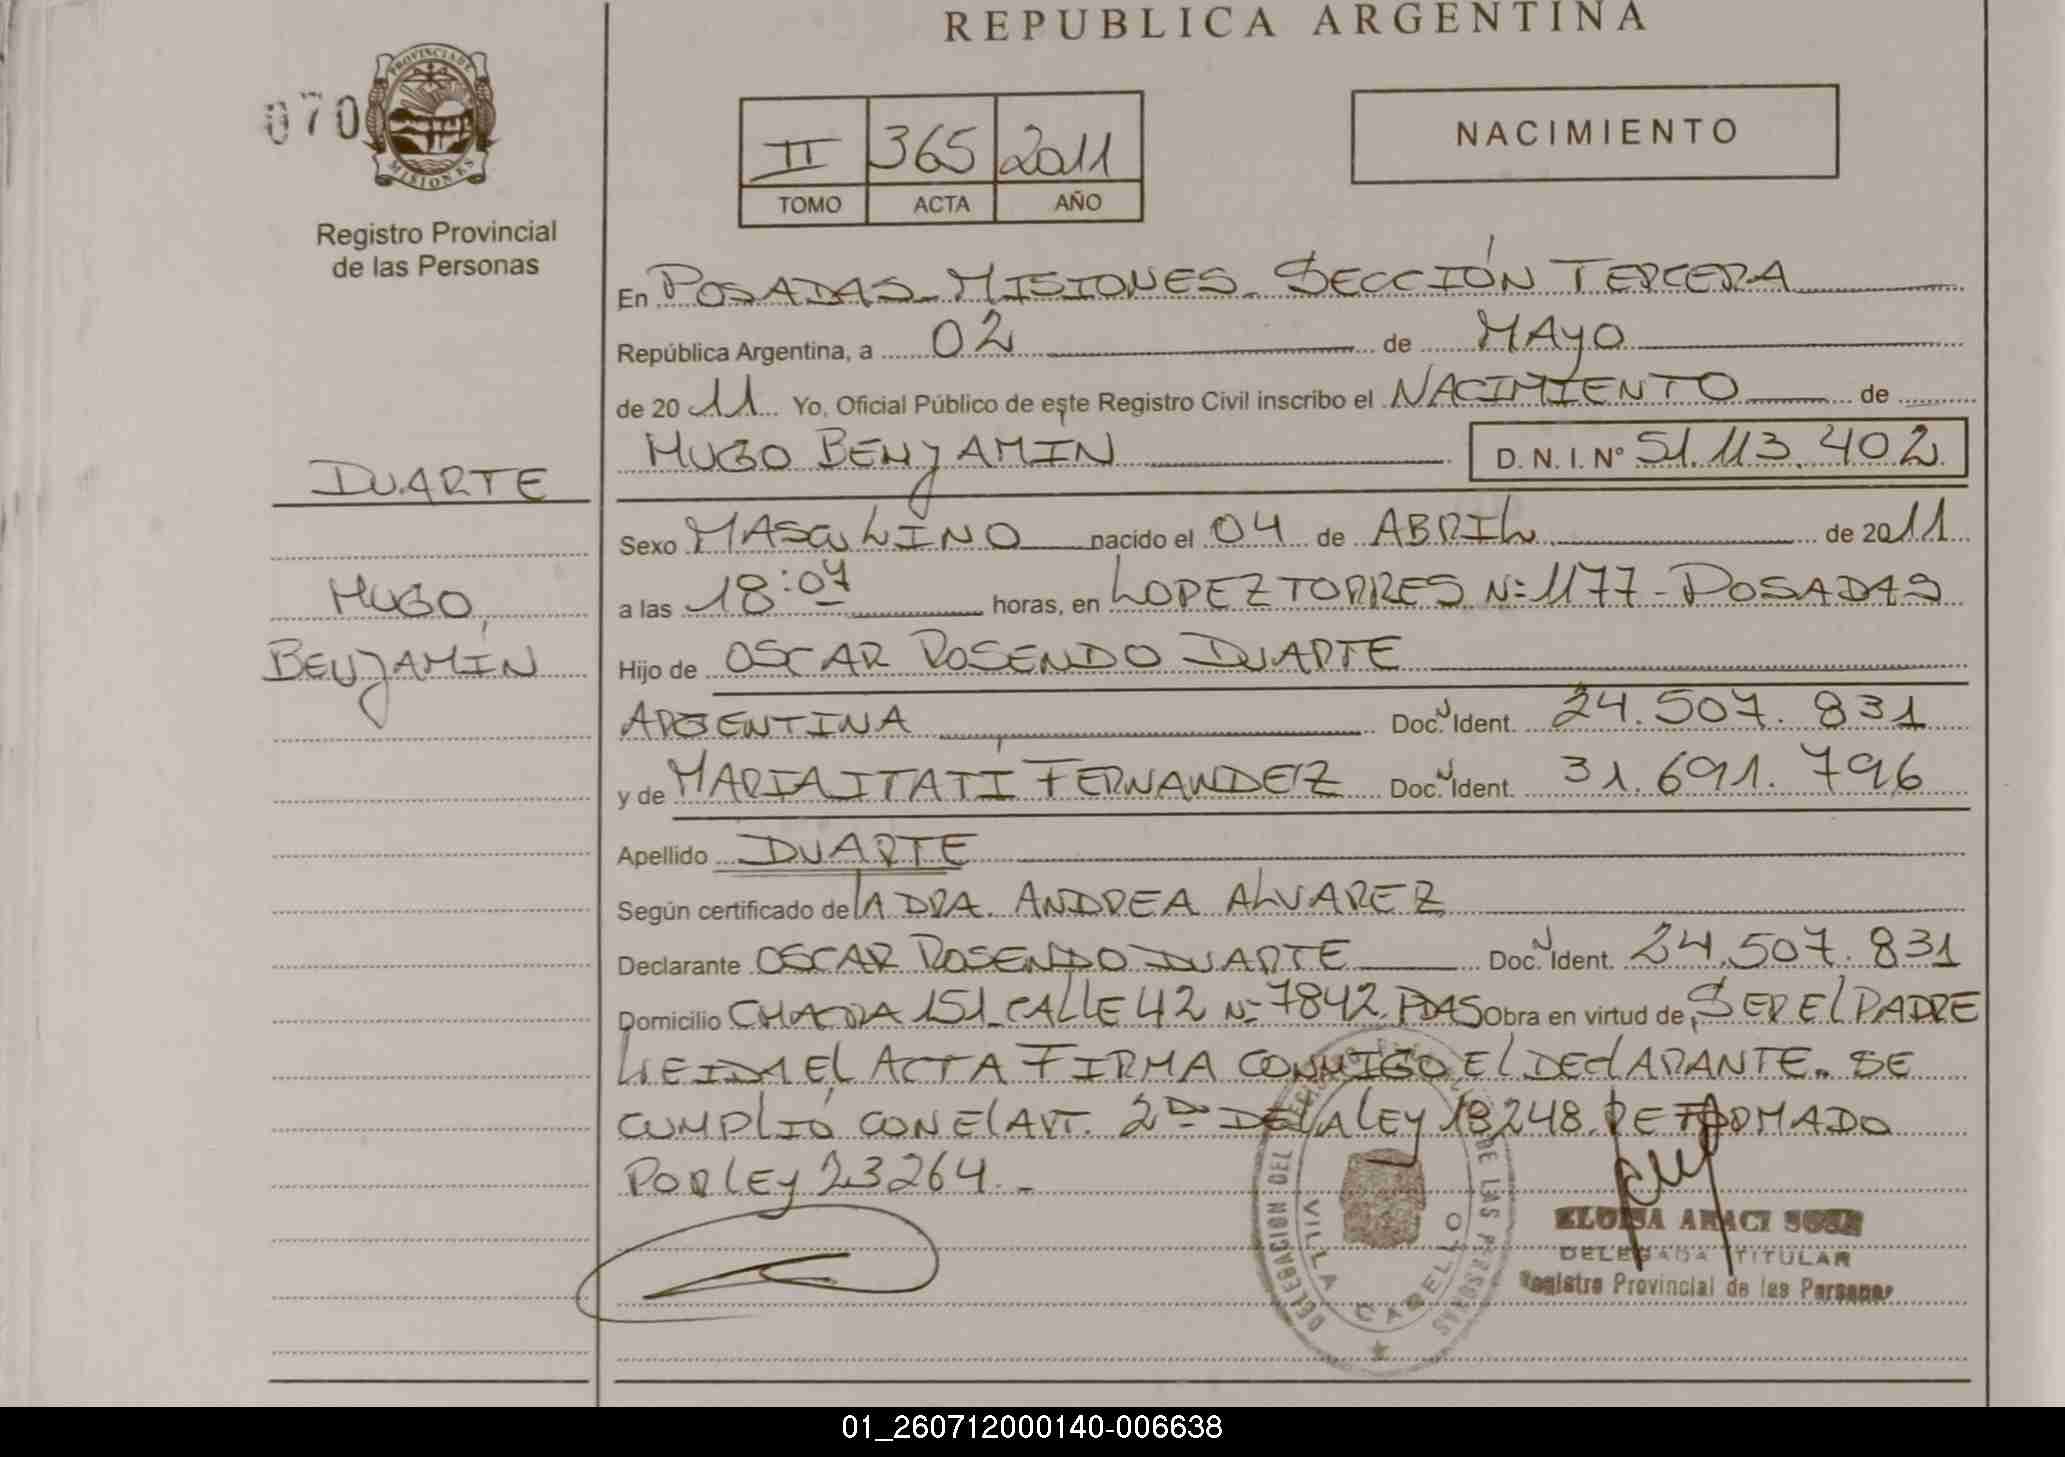 REPUBLICA ARGENTINA
070
PROVINCIA DE MISIONES
Registro Provincial
de las Personas
II 365 2011
TOMO ACTA AÑO
NACIMIENTO
En POSADAS - MISIONES - SECCIÓN TERCERA
República Argentina, a 02 de MAYO
de 2011 Yo, Oficial Público de este Registro Civil inscribo el NACIMIENTO de
HUGO BENJAMÍN D. N. I. N° 51.113.402
DUARTE
HUGO
BENJAMÍN
Sexo MASCULINO nacido el 04 de ABRIL de 2011
a las 18:07 horas, en LOPEZ TORRES Nº 1177 - POSADAS
Hijo de OSCAR ROSENDO DUARTE
ARGENTINA Doc. Ident. 24.507.831
y de MARIA ITATÍ FERNANDEZ Doc. Ident. 31.691.796
Apellido DUARTE
Según certificado de lA DRA. ANDREA ALVAREZ
Declarante OSCAR ROSENDO DUARTE Doc. Ident. 24.507.831
Domicilio CHACRA 151 - CALLE 42 Nº 7842. PDAS Obra en virtud de SER El PADRE
LEIDA El ACTA FIRMA CONMIGO El DEClARANTE. SE
CUMPLIÓ CON El ART. 2do DE lA lEy 18.248 REFORMADO
POR lEy 23264. -
DELEGACION DEL REGISTRO DE LAS PERSONAS
VILLA CABELLO
ELOISA ARACI SOSA
DELEGADA TITULAR
Registro Provincial de las Personas
01_260712000140-006638